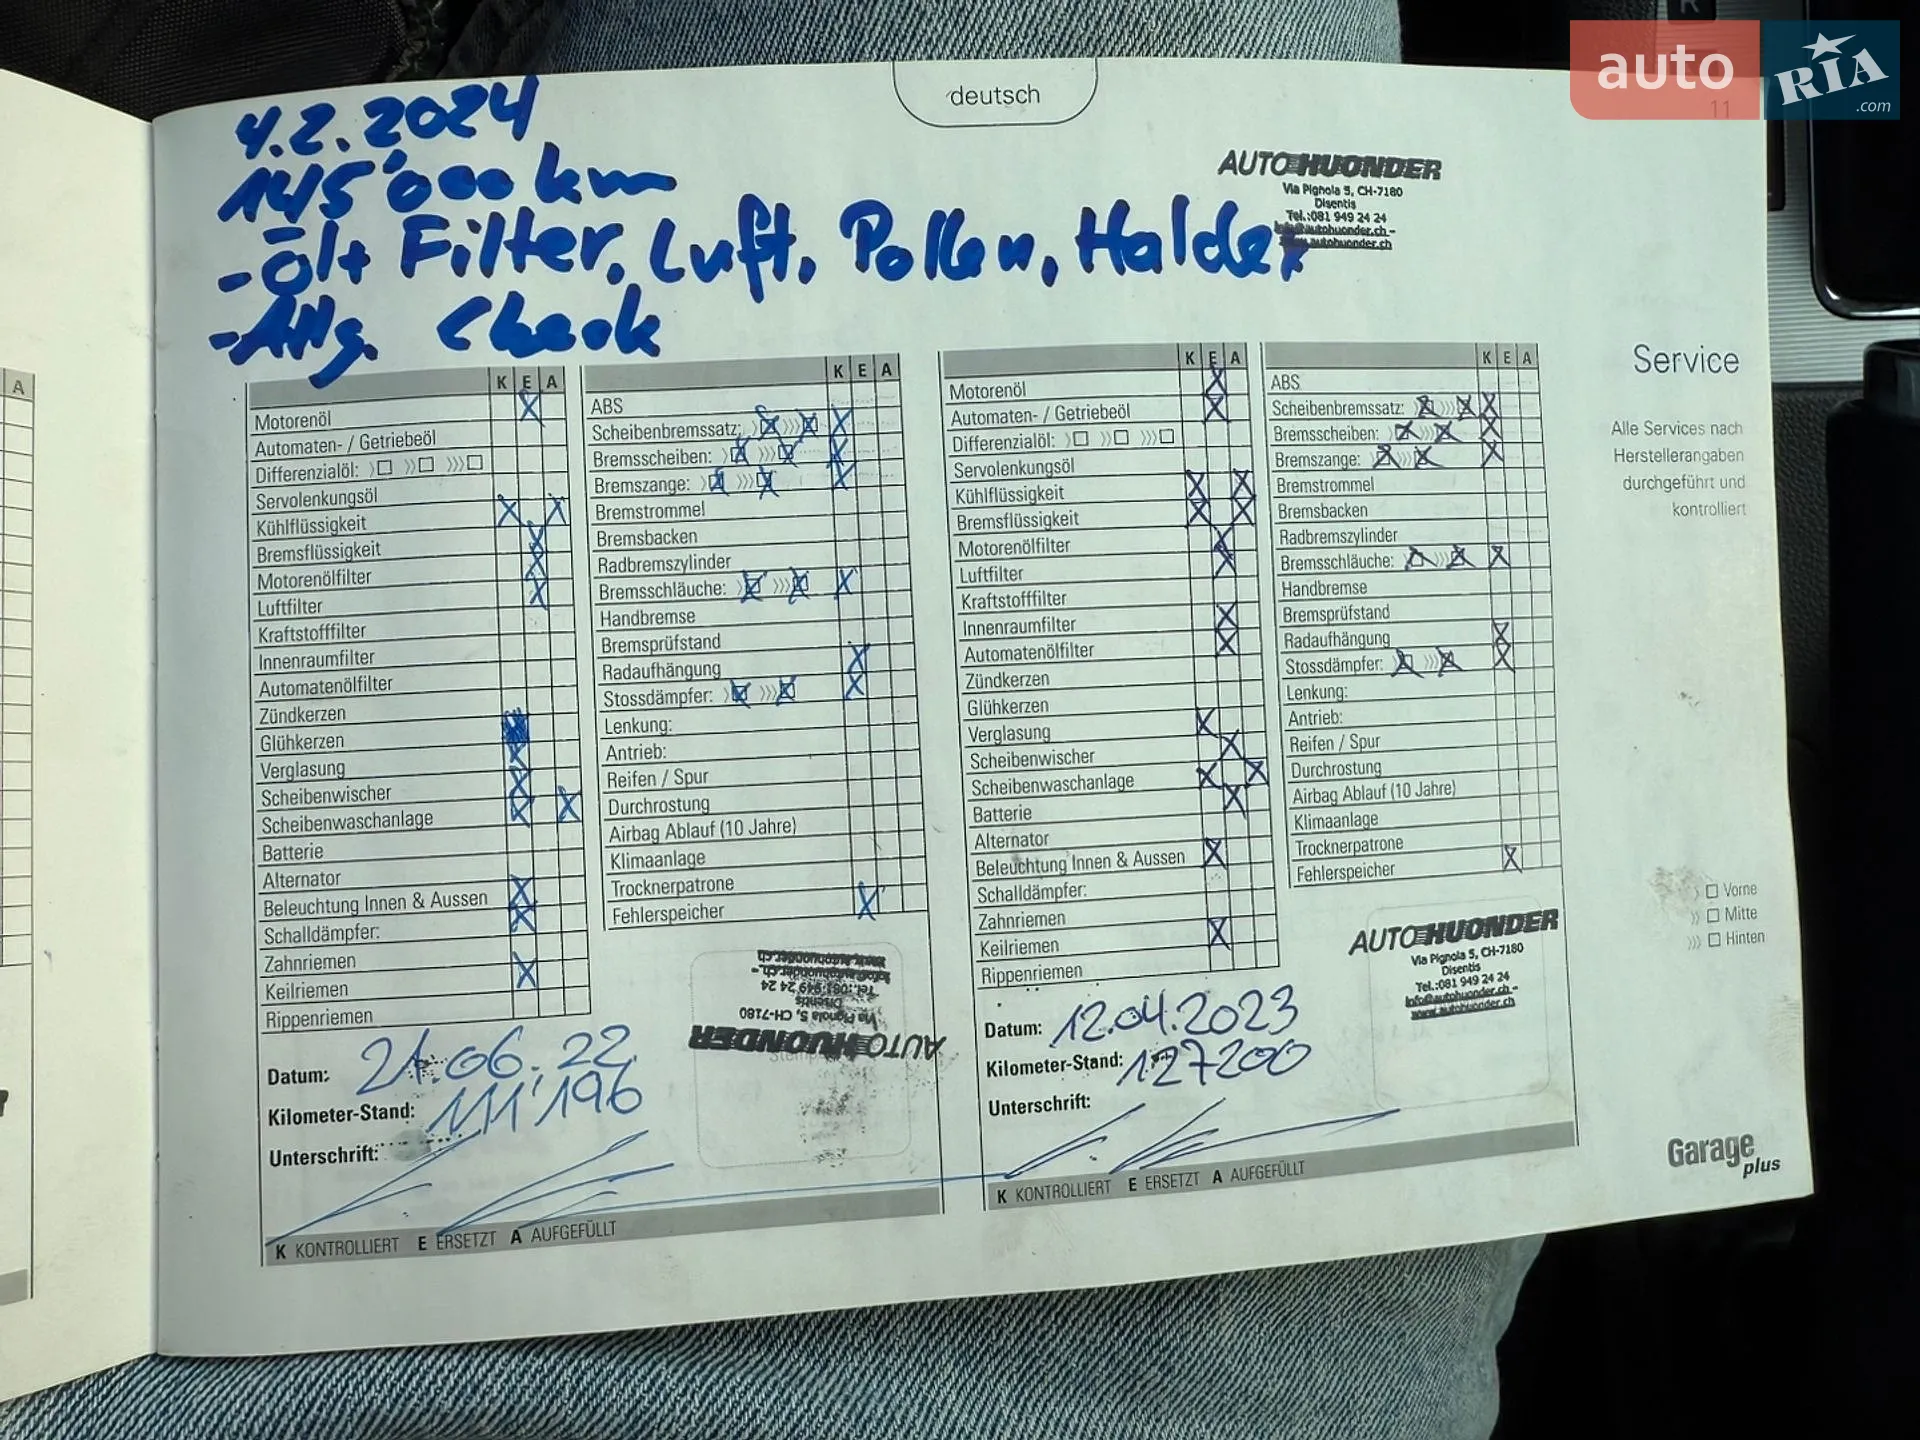 auto RIA.com
11
deutsch
4.2.2024
145'000 km
- Öl+ Filter, Luft, Pollen, Haldex
- Allg. Check
AUTO HUONDER
Via Pignola 5, CH-7180
Disentis
Tel.:081 949 24 24
info@autohuonder.ch -
www.autohuonder.ch
A
K E A
Motorenöl
Automaten- / Getriebeöl
Differenzialöl: 〉☐ 〉〉☐ 〉〉〉☐
Servolenkungsöl
Kühlflüssigkeit
Bremsflüssigkeit
Motorenölfilter
Luftfilter
Kraftstofffilter
Innenraumfilter
Automatenölfilter
Zündkerzen
Glühkerzen
Verglasung
Scheibenwischer
Scheibenwaschanlage
Batterie
Alternator
Beleuchtung Innen & Aussen
Schalldämpfer:
Zahnriemen
Keilriemen
Rippenriemen
K E A
ABS
Scheibenbremssatz:
Bremsscheiben:
Bremszange:
Bremstrommel
Bremsbacken
Radbremszylinder
Bremsschläuche:
Handbremse
Bremsprüfstand
Radaufhängung
Stossdämpfer:
Lenkung:
Antrieb:
Reifen / Spur
Durchrostung
Airbag Ablauf (10 Jahre)
Klimaanlage
Trocknerpatrone
Fehlerspeicher
AUTO HUONDER
Via Pignola 5, CH-7180
Disentis
Tel.:081 949 24 24
info@autohuonder.ch -
www.autohuonder.ch
Datum: 21.06.22
Kilometer-Stand: 111'196
Unterschrift:
K KONTROLLIERT E ERSETZT A AUFGEFÜLLT
K E A
Motorenöl
Automaten- / Getriebeöl
Differenzialöl: 〉☐ 〉〉☐ 〉〉〉☐
Servolenkungsöl
Kühlflüssigkeit
Bremsflüssigkeit
Motorenölfilter
Luftfilter
Kraftstofffilter
Innenraumfilter
Automatenölfilter
Zündkerzen
Glühkerzen
Verglasung
Scheibenwischer
Scheibenwaschanlage
Batterie
Alternator
Beleuchtung Innen & Aussen
Schalldämpfer:
Zahnriemen
Keilriemen
Rippenriemen
K E A
ABS
Scheibenbremssatz:
Bremsscheiben:
Bremszange:
Bremstrommel
Bremsbacken
Radbremszylinder
Bremsschläuche:
Handbremse
Bremsprüfstand
Radaufhängung
Stossdämpfer:
Lenkung:
Antrieb:
Reifen / Spur
Durchrostung
Airbag Ablauf (10 Jahre)
Klimaanlage
Trocknerpatrone
Fehlerspeicher
AUTO HUONDER
Via Pignola 5, CH-7180
Disentis
Tel.:081 949 24 24
info@autohuonder.ch -
www.autohuonder.ch
Datum: 12.04.2023
Kilometer-Stand: 127200
Unterschrift:
K KONTROLLIERT E ERSETZT A AUFGEFÜLLT
Service
Alle Services nach
Herstellerangaben
durchgeführt und
kontrolliert
〉☐ Vorne
〉〉☐ Mitte
〉〉〉☐ Hinten
Garage
plus